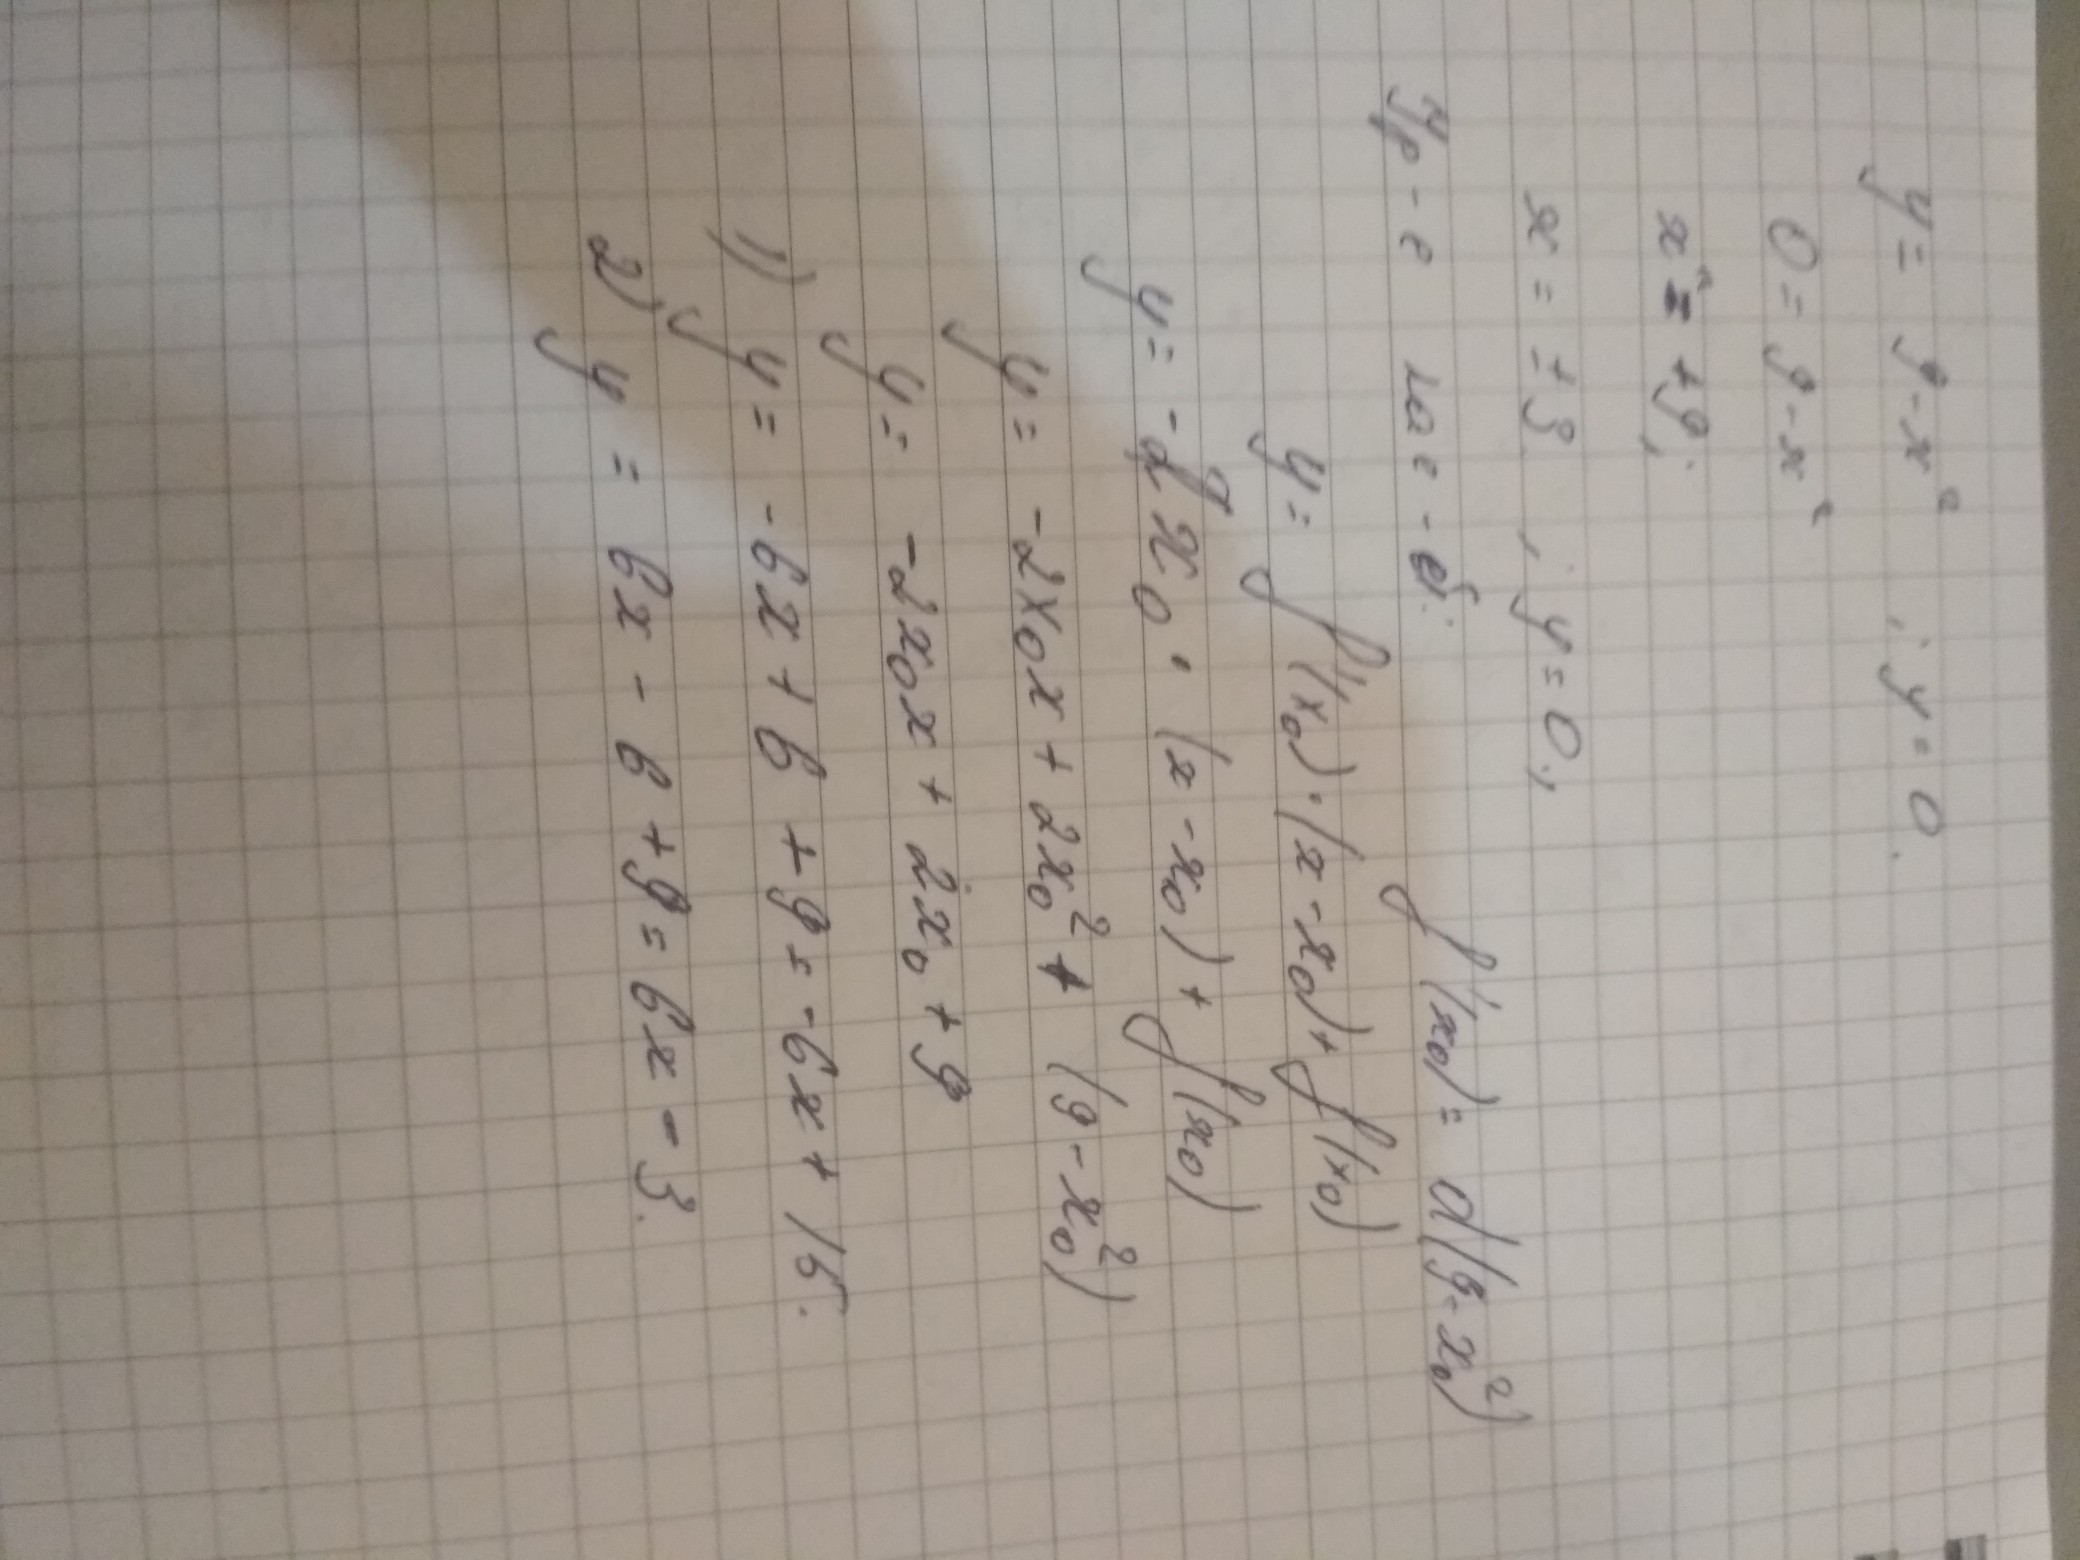 y = 9 - x² ; y = 0.
0 = 9 - x²
x² = +9;
x = ±3 ; y = 0;
Ур-е кас-й: f'(x₀) = d(9 - x₀²)
y = f'(x₀)·(x - x₀) + f(x₀)
y = -2x₀ · (x - x₀) + f(x₀)
y = -2x₀x + 2x₀² + (9 - x₀²)
y = -2x₀x + 2x₀ + 9
1) y = -6x + 6 + 9 = -6x + 15.
2) y = 6x - 6 + 9 = 6x - 3.